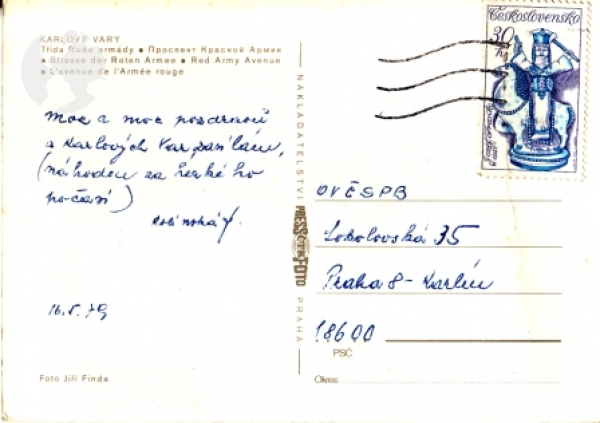 KARLOVY VARY
Třída Rudé armády • Проспект Красной Армии
• Strasse der Roten Armee • Red Army Avenue
• L'avenue de l'Armée rouge
Moc a moc pozdravů
z Karlových Var posílám,
(náhodou za hezkého
počasí)
16.5.79
Foto Jiří Finda
NAKLADATELSTVÍ PRESSFOTO PRAHA
Československo
30 h
OVČSPB
Sokolovská 35
Praha 8 - Karlín
18600
PSČ
Okres: